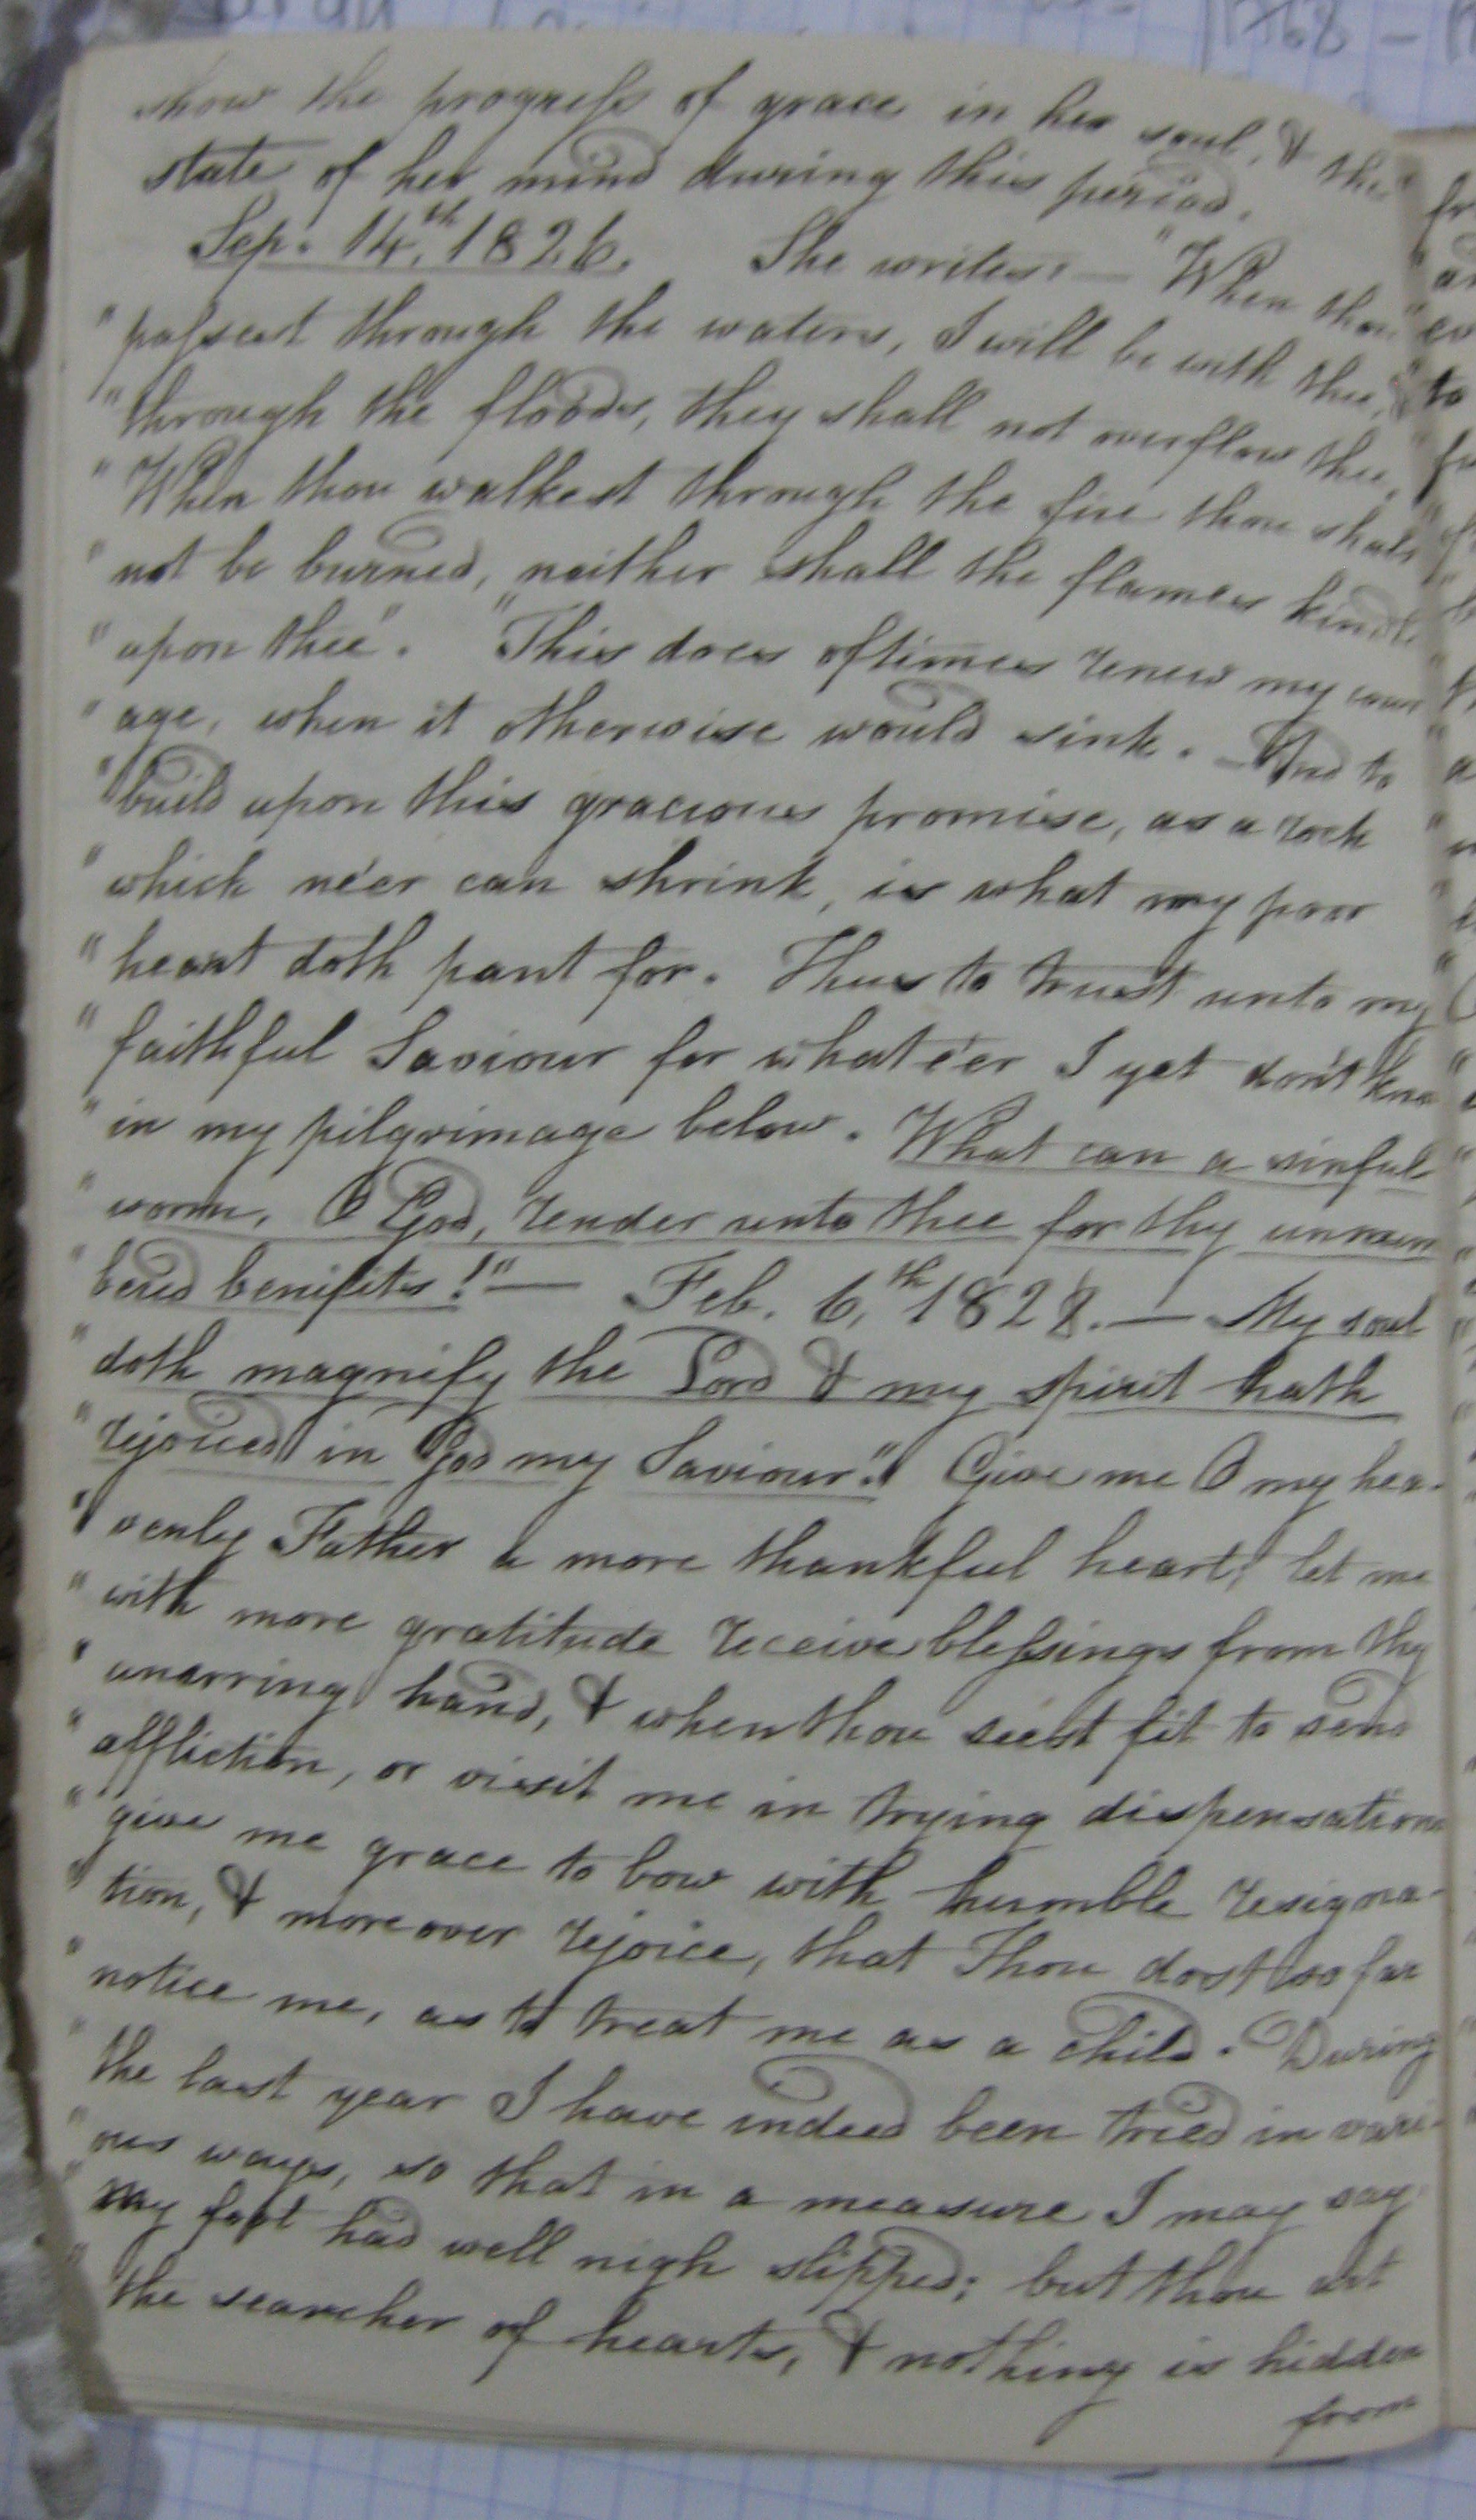 1768 -
show the progress of grace in her soul, & the
state of her mind during this period.
Sep. 14,th 1826. She writes:— "When thou
"passest through the waters, I will be with thee, &
"through the floods, they shall not overflow thee,
"When thou walkest through the fire thou shalt
"not be burned, neither shall the flames kindle
"upon thee". "This does oftimes renew my cour
"age, when it otherwise would sink. And to
"build upon this gracious promise, as a rock
"which ne'er can shrink, is what my poor
"heart doth pant for. Thus to trust unto my
"faithful Saviour for whate'er I yet don't know
"in my pilgrimage below. What can a sinful
"worm, O God, render unto thee for thy unnum
"bered benifits!"— Feb. 6,th 1828.— My soul
"doth magnify the Lord & my spirit hath
"rejoiced in God my Saviour". Give me O my hea-
"venly Father a more thankful heart; let me
"with more gratitude receive blessings from thy
"unarring hand, & when thou seest fit to send
"affliction, or visit me in trying dispensations
"give me grace to bow with humble resigna-
"tion, & moreover rejoice, that Thou dost so far
"notice me, as to treat me as a child. During
"the last year I have indeed been tried in vari-
"ous ways, so that in a measure I may say
"my foot had well nigh slipped; but thou art
"the searcher of hearts, & nothing is hidden
from
to